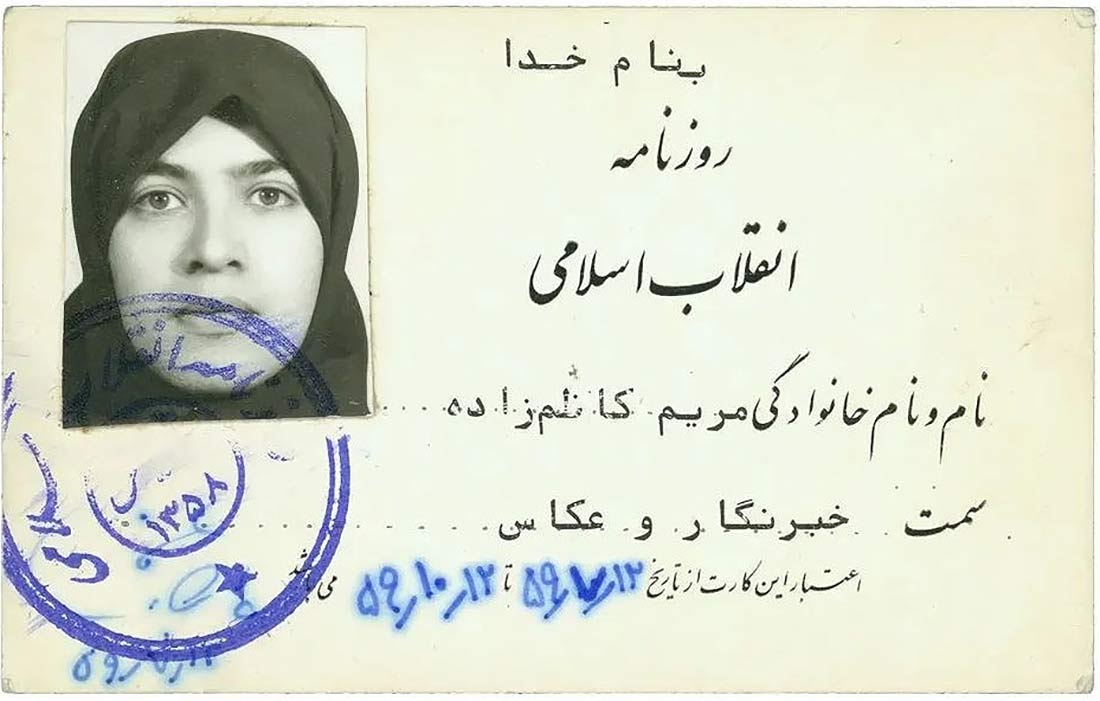 بنام خدا
روزنامه
انقلاب اسلامی
نام و نام خانوادگی مریم کاظم‌زاده
سمت خبرنگار و عکاس
اعتبار این کارت از تاریخ ۵۹٫۷٫۱۲ تا ۵۹٫۱۰٫۱۲ می‌باشد
۱۳۵۸